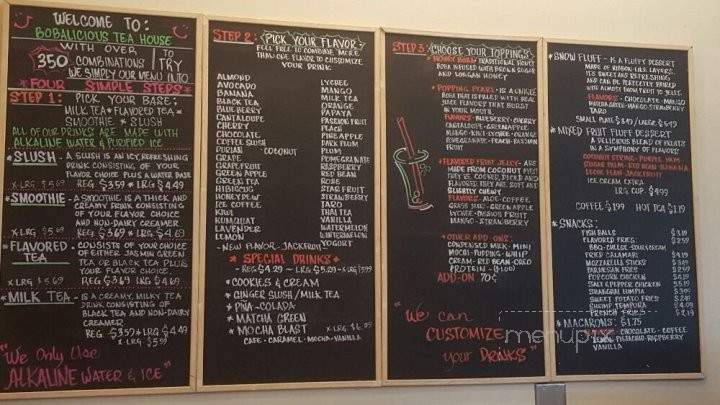 WELCOME TO:
BOBALICIOUS TEA HOUSE
WITH OVER
350 COMBINATIONS TO TRY
WE SIMPLY OUR MENU INTO
*FOUR SIMPLE STEPS*
STEP 1: PICK YOUR BASE:
MILK TEA * FLAVORED TEA
SMOOTHIE * SLUSH
ALL OF OUR DRINKS ARE MADE WITH
ALKALINE WATER & PURIFIED ICE
*SLUSH - A SLUSH IS AN ICY, REFRESHING
DRINK CONSISTING OF YOUR
FLAVOR CHOICE PLUS A WATER BASE
X LRG 5.69 REG $3.59 * LRG $4.49
*SMOOTHIE - A SMOOTHIE IS A THICK AND
CREAMY DRINK CONSISTING
OF YOUR FLAVOR CHOICE
AND NON-DAIRY CREAMER
X LRG 5.69 REG $3.69 * LRG $4.69
*FLAVORED TEA - CONSISTS OF YOUR CHOICE
OF EITHER JASMINE GREEN
TEA OR BLACK TEA PLUS
YOUR FLAVOR CHOICE.
X LRG 5.69 REG $3.69 LRG $4.69
*MILK TEA - IS A CREAMY, MILKY TEA
DRINK CONSISTING OF
BLACK TEA AND NON-DAIRY
CREAMER
REG $3.59 * LRG $4.49
X LRG $5.99
"We Only Use
ALKALINE WATER & ICE"
STEP 2: PICK YOUR FLAVOR
FEEL FREE TO COMBINE MORE
THAN ONE FLAVOR TO CUSTOMIZE
YOUR DRINK
ALMOND
AVOCADO
BANANA
BLACK TEA
BLUEBERRY
CANTALOUPE
CHERRY
CHOCOLATE
COFFEE SLUSH
DURIAN COCONUT
GRAPE
GRAPEFRUIT
GREEN APPLE
GREEN TEA
HIBISCUS
HONEYDEW
ICE COFFEE
KIWI
KUMQUAT
LAVENDER
LEMON
LYCHEE
MANGO
MILK TEA
ORANGE
PAPAYA
PASSION FRUIT
PEACH
PINEAPPLE
DARK PLUM
PLUM
POMEGRANATE
RASPBERRY
RED BEAN
ROSE
STAR FRUIT
STRAWBERRY
TARO
THAI TEA
VANILLA
WATERMELON
WINTERMELON
YOGURT
- NEW FLAVOR - JACKFRUIT
* SPECIAL DRINKS *
- REG $4.29 - LRG $5.29 - X LRG $5.99
* COOKIES & CREAM
* GINGER SLUSH / MILK TEA
* PIÑA-COLADA
* MATCHA GREEN
* MOCHA BLAST X LRG $6.09
CAFE - CARAMEL - MOCHA - VANILLA
STEP 3: CHOOSE YOUR TOPPINGS
* HONEY BOBA - TRADITIONAL HONEY
BOBA INFUSED WITH BROWN SUGAR
AND LONGAN HONEY
* POPPING PEARL - IS A UNIQUE
BOBA THAT IS FILLED WITH REAL
JUICE FLAVORS THAT BURST
IN YOUR MOUTH
FLAVORS - BLUEBERRY - CHERRY
CANTALOUPE - GREEN APPLE
MANGO - KIWI - LYCHEE - ORANGE
POMEGRANATE - PEACH - PASSION
FRUIT
* FLAVORED FRUIT JELLY - ARE
MADE FROM COCONUT
THEY'RE COOKED, PICKED AND
FLAVORED. THEY ARE SOFT AND
SLIGHTLY CHEWY
FLAVORS - ALOE - COFFEE
GRASS JELLY - GREEN APPLE
LYCHEE - RAINBOW FRUIT
MANGO - STRAWBERRY
* OTHER ADD-ONS:
CONDENSED MILK - MINI
MOCHI - PUDDING - WHIP
CREAM - RED BEAN - OREO
PROTEIN - ($1.00)
ADD-ON 70¢
"We can
CUSTOMIZE
your DRINKS"
* SNOW FLUFF - IS A FLUFFY DESSERT
MADE OF RIBBON-LIKE LAYERS.
IT'S SWEET AND REFRESHING
AND CAN BE PERFECTLY PAIRED
WITH ALMOND FROM FRUIT TO JELLY.
FLAVORS - CHOCOLATE - MANGO
MATCHA GREEN - MANGO - STRAWBERRY
TARO
SMALL PLATE $3.49 / LARGE $6.49
* MIXED FRUIT FLUFF DESSERT
A DELICIOUS BLEND OF FRUITS
IN A SYMPHONY OF FLAVORS
COCONUT STRING - PURPLE YAM
SUGAR PALM - RED BEAN - BANANA
JACKFRUIT
ICE CREAM EXTRA
LRG CUP $4.99
COFFEE $1.99 HOT TEA $1.79
* SNACKS:
FISH BALLS $3.19
FLAVORED FRIES: $2.59
BBQ - CHEESE - SOUR CREAM
FRIED CALAMARI $4.19
MOZZARELLA STICKS $3.89
PARMESAN FRIES $2.59
POPCORN CHICKEN $4.19
SALT & PEPPER CHICKEN $5.19
SHANGHAI LUMPIA $3.09
SWEET POTATO FRIES $2.49
SHRIMP TEMPURA $4.09
FRENCH FRIES $2.19
* MACARONS: $1.75
CHOCOLATE - COFFEE
LEMON - PISTACHIO - RASPBERRY
VANILLA
menupix